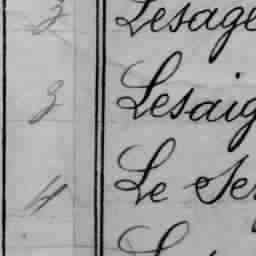 3 Lesage
3 Lesaig
4 Le Se